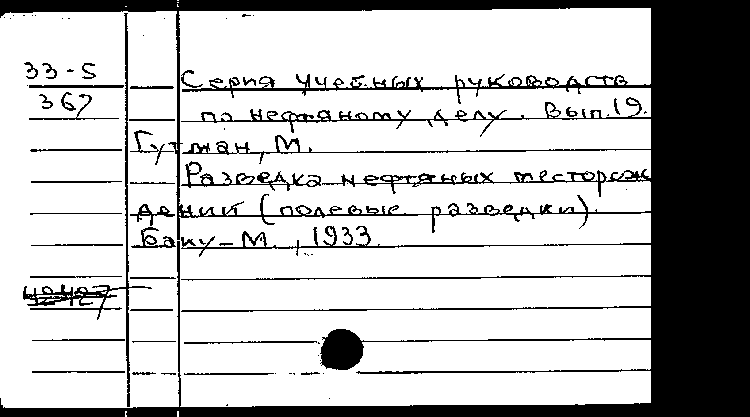 33-5
367
Серия учебных руководств
по нефтяному делу. Вып.19.
Гутман, М.
Разведка нефтяных месторож
дений (полевые разведки).
Баку-М., 1933.
42427